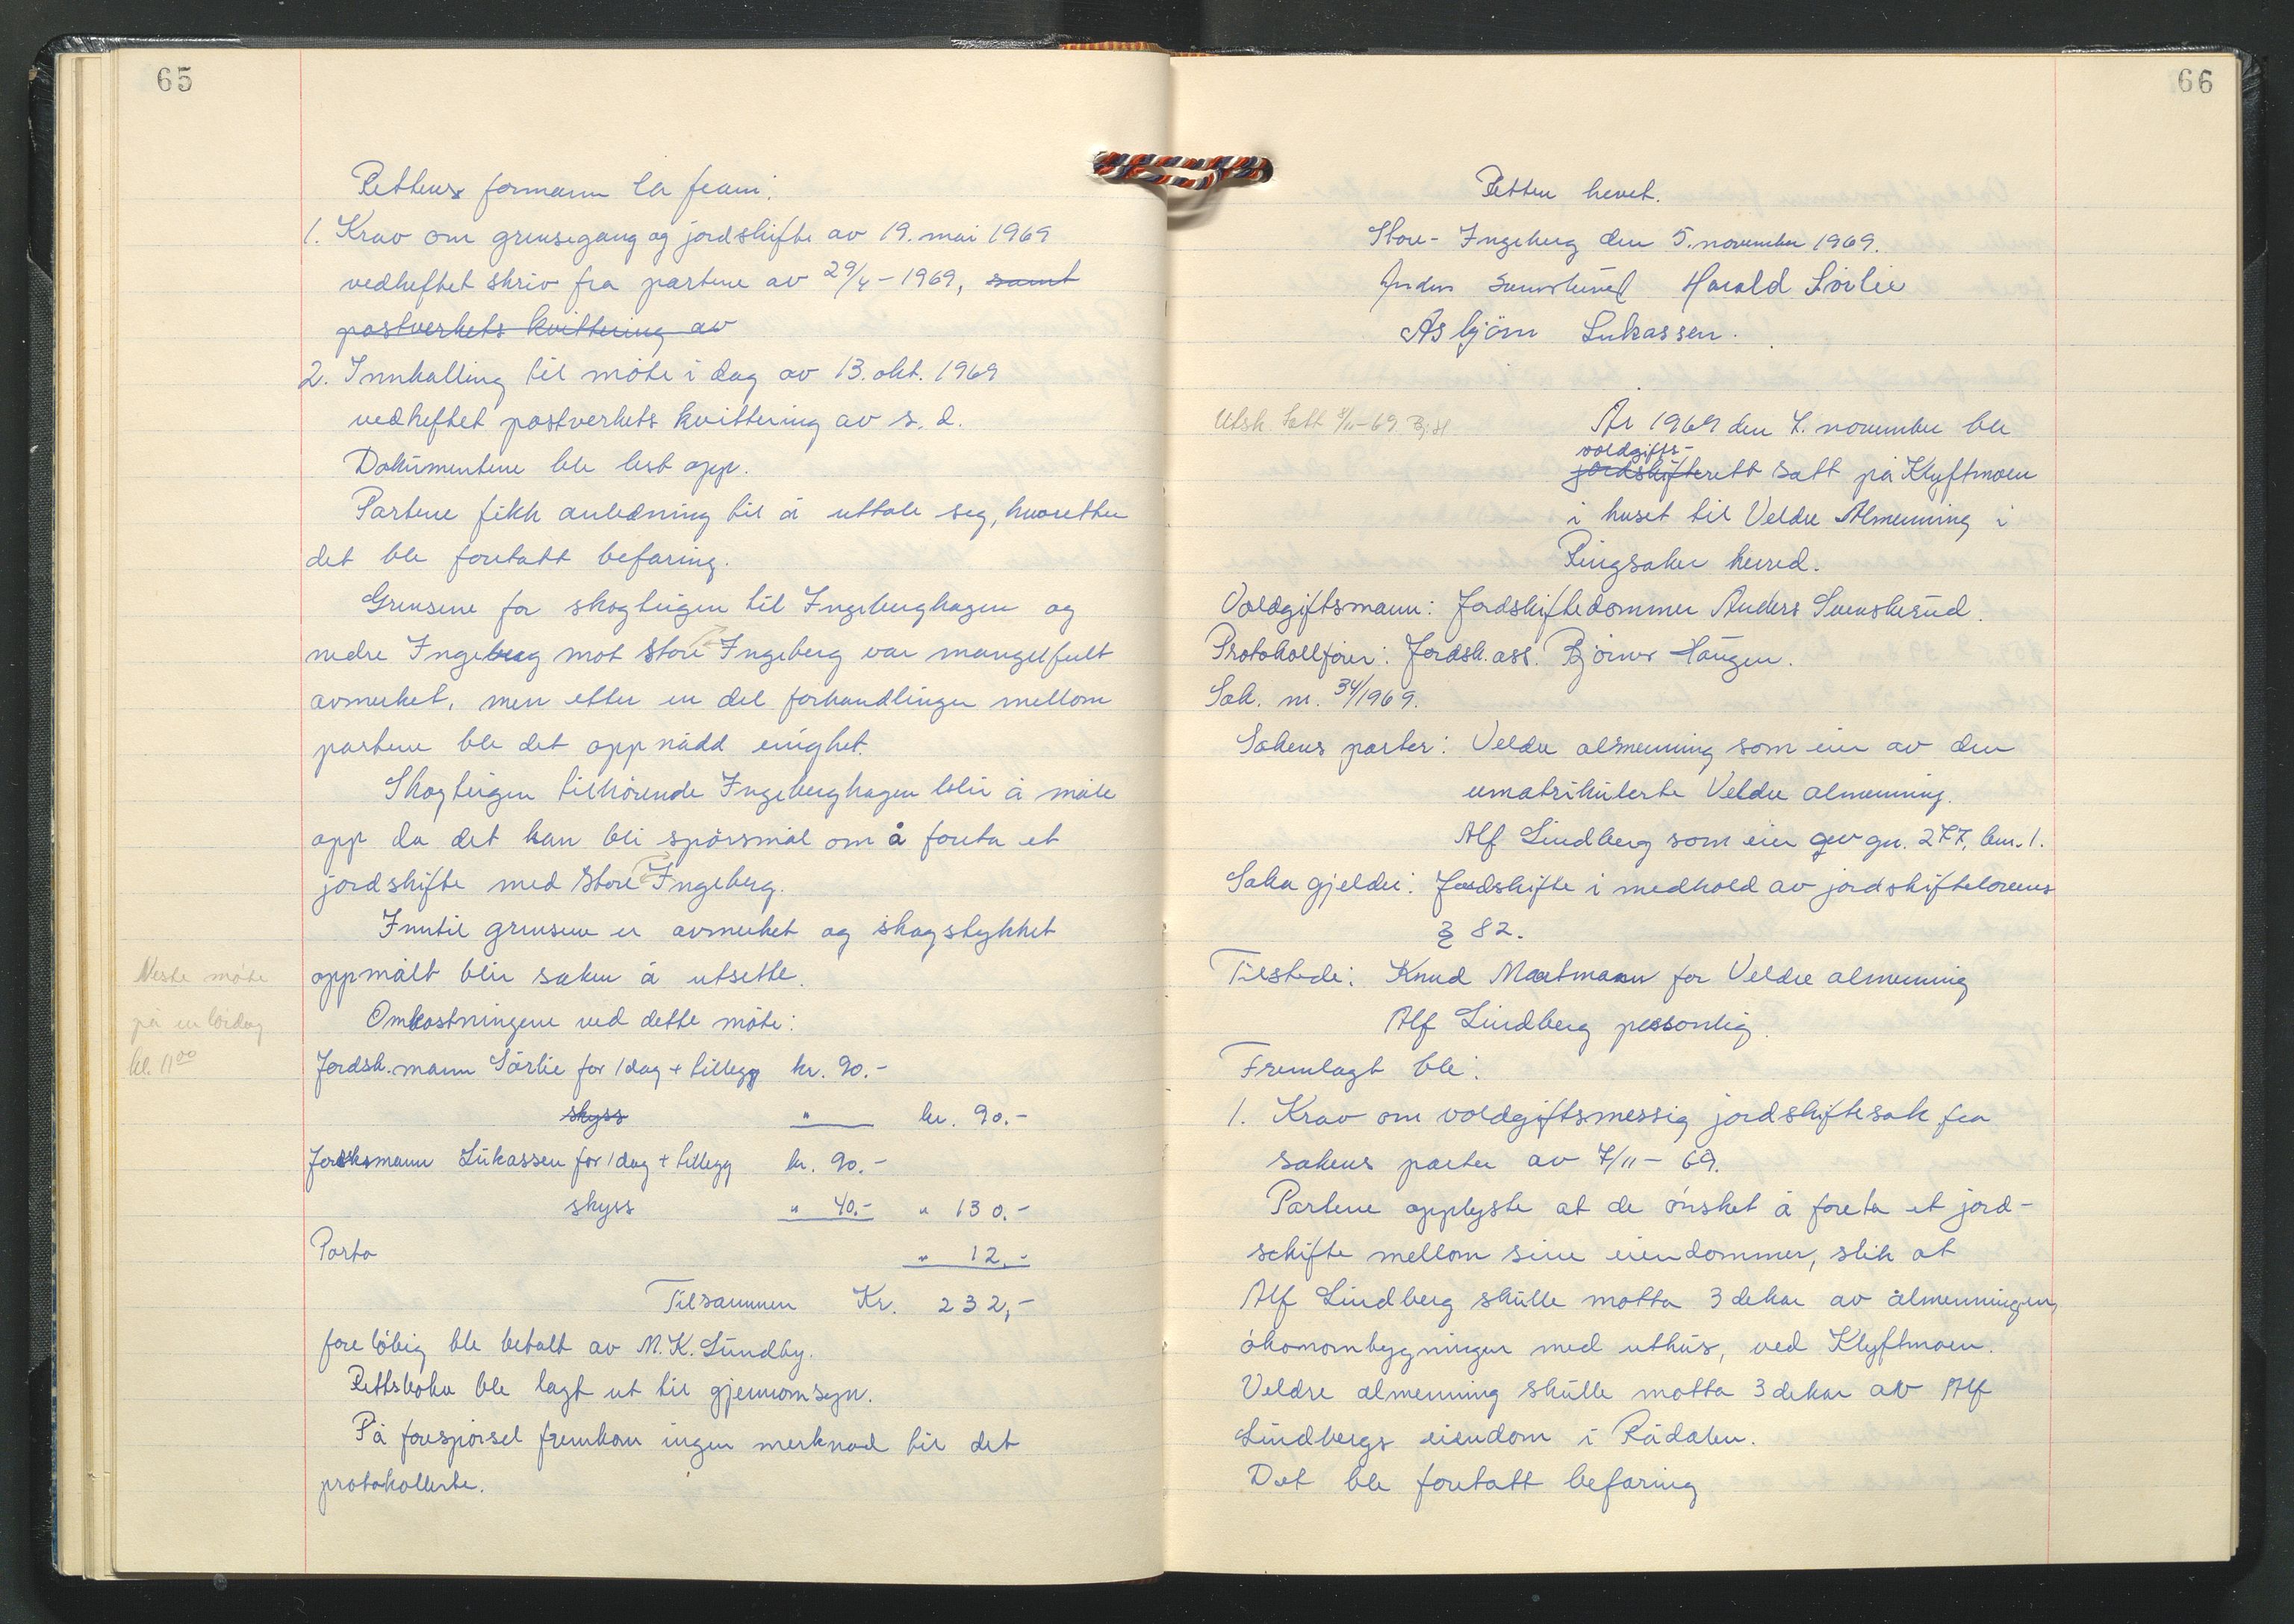 65
Rettens formann la fram:
1. Krav om grensegang og jordskifte av 19. mai 1969
vedheftet skriv fra partene av 29/4 - 1969, samt
postverkets kvittering av
2. Innkalling til møte i dag av 13. okt. 1969
vedheftet postverkets kvittering av s. d.
Dokumentene ble lest opp.
Partene fikk anledning til å uttale seg, hvoretter
det ble foretatt befaring.
Grensene for skogteigen til Ingeberghagen og
nedre Ingeberg mot Store Ingeberg var mangelfullt
avmerket, men etter en del forhandlinger mellom
partene ble det oppnådd enighet.
Skogteigen tilhørende Ingeberghagen blir å måle
opp da det kan bli spørsmål om å foreta et
jordskifte med Store Ingeberg.
Inntil grensene er avmerket og skogstykket
Neste møte
på en lørdag
kl. 11⁰⁰
oppmålt blir saken å utsette.
Omkostningene ved dette møte:
Jordsk.mann Sørlie for 1 dag + tillegg kr. 90.-
skyss " kr. 90.-
Jordskmann Lukassen for 1 dag + tillegg kr. 90.-
skyss " 40.- " 130.-
Porto " 12.-
Tilsammen Kr. 232,-
foreløbig ble betalt av M. K. Lundby.
Rettsboka ble lagt ut til gjennomsyn.
På forespørsel fremkom ingen merknad til det
protokollerte.
66
Retten hevet.
Store-Ingeberg den 5. november 1969.
Anders Svenskerud Harald Sørlie
Asbjørn Lukassen.
Utsk. Sett 8/11-69 Bj H
År 1969 den 7. november ble
voldgifts-
jordskifterett satt på Klyftmoen
i huset til Veldre Almenning i
Ringsaker herred.
Voldgiftsmann: Jordskiftedommer Anders Svenskerud.
Protokollfører: Jordsk.ass. Bjørner Haugen.
Sak. nr. 34/1969.
Sakens parter: Veldre almenning som eier av den
umatrikulerte Veldre almenning.
Alf Lindberg som eier av gn. 277, bnr. 1.
Saka gjelder: Jordskifte i medhold av jordskiftelovens
§ 82.
Tilstede: Knud Martmann for Veldre almenning
Alf Lindberg personlig.
Fremlagt ble:
1. Krav om voldgiftsmessig jordskiftesak fra
sakens parter av 7/11 - 69.
Partene opplyste at de ønsket å foreta et jord-
schifte mellom sine eiendommer, slik at
Alf Lindberg skulle motta 3 dekar av almenningen,
økonombygningen med uthus, ved Klyftmoen.
Veldre almenning skulle motta 3 dekar av Alf
Lindbergs eiendom i Rådalen.
Det ble foretatt befaring